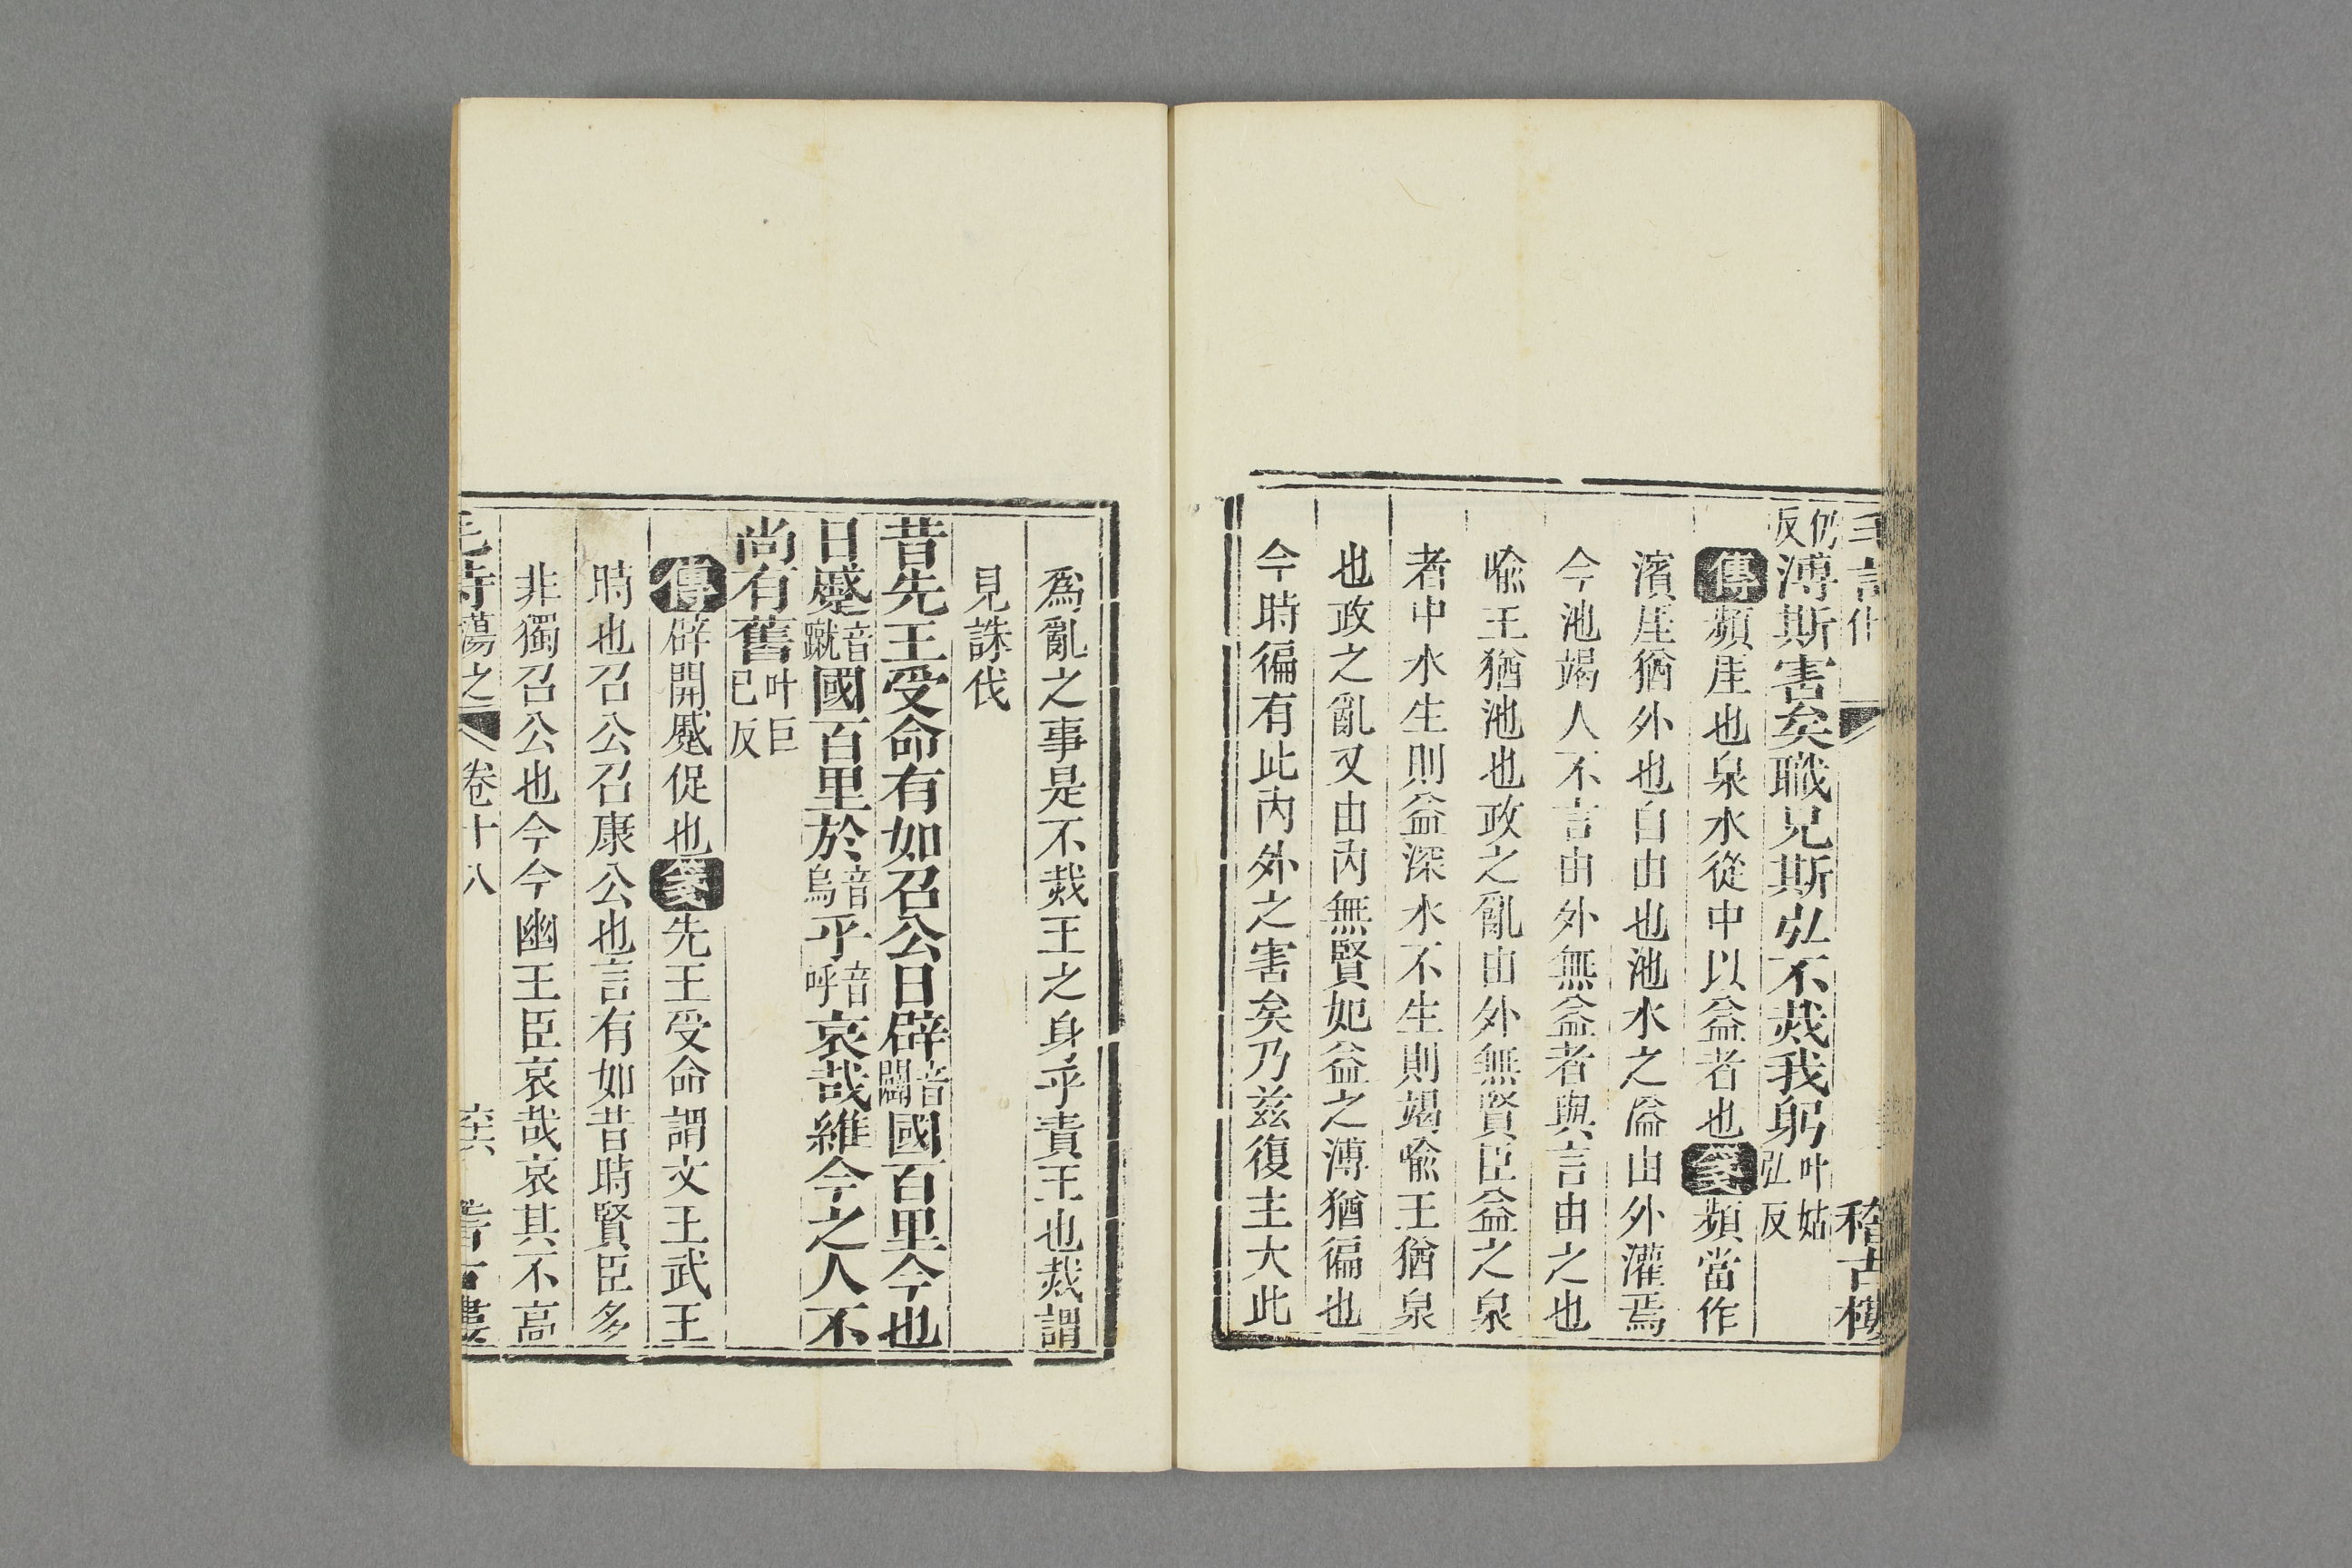 仍反溥斯害矣職兄斯弘不烖我躬叶姑弘反
傳頻厓也泉水從中以益者也箋頻當作
濱厓猶外也自由也池水之溢由外灌焉
今池竭人不言由外無益者與言由之也
喻王猶池也政之亂由外無賢臣益之泉
者中水生則益深水不生則竭喻王猶泉
也政之亂又由內無賢妃益之溥猶徧也
今時徧有此內外之害矣乃茲復主大此
稽古樓
爲亂之事是不烖王之身乎責王也烖謂
見誅伐
昔先王受命有如召公日辟音闢國百里今也
日蹙音蹴國百里於音烏乎音呼哀哉維今之人不
尚有舊叶巨已反
傳辟開蹙促也箋先王受命謂文王武王
時也召公召康公也言有如昔時賢臣多
非獨召公也今今幽王臣哀哉哀其不高
毛詩蕩之 卷十八